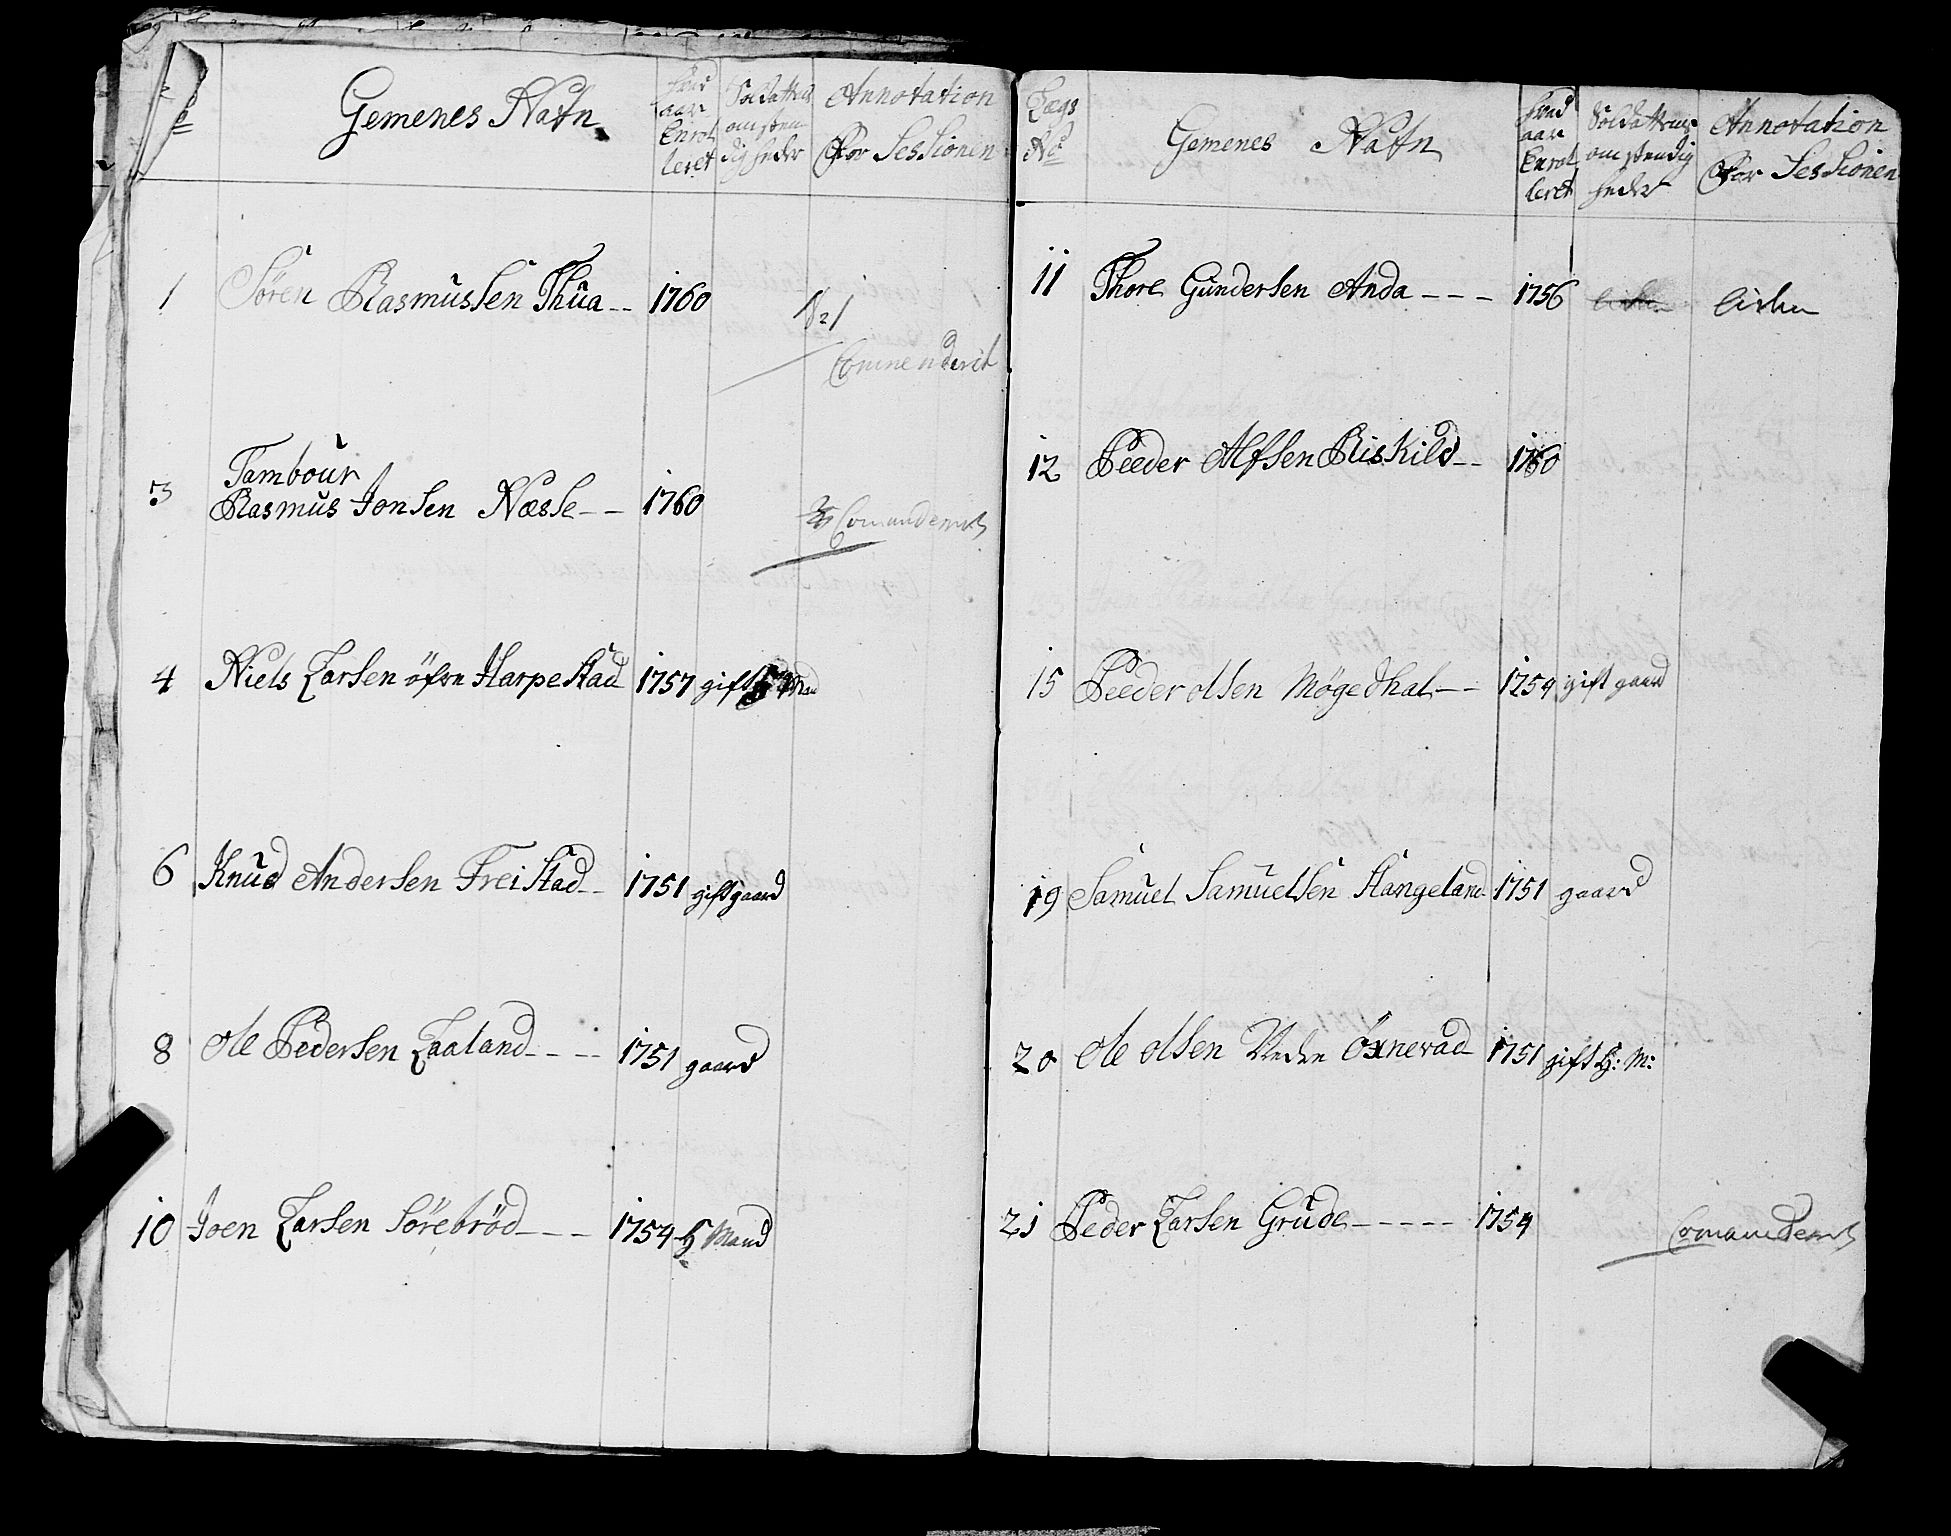 No
Gemenes Nafn
hvad aar Enrolleret
Soldattens omstendigheder
Annotation For Sessionen
1 Sören Rasmussen Thŭa -- 1760
Commenderit
Tambour
3 Rasmus Jonsen Næsse -- 1760 Comanderit
4 Niels Larsen öfre Harpestad 1757 gift
6 Knud Andersen Freistad - 1751 gift gaard
8 Ole Pedersen Laaland --- 1751 gaard
10 Joen Larsen Sörebröd --- 1754 H Mand
Lægs No
Gemenes Nafn
hvad aar Enrolleret
Soldattens omstendigheder
Annotation For Sessionen
11 Thore Gundersen Anda --- 1756 liden
12 Peeder Alfsen Riskild -- 1760
15 Peeder olsen Møgedhal -- 1754 gift gaard
19 Samuel Samuelsen Stangeland 1751 gaard
20 Ole olsen Nedre Öxnevad 1751 gift H: M:
21 Peder Larsen Grude ----- 1754 Comanderit